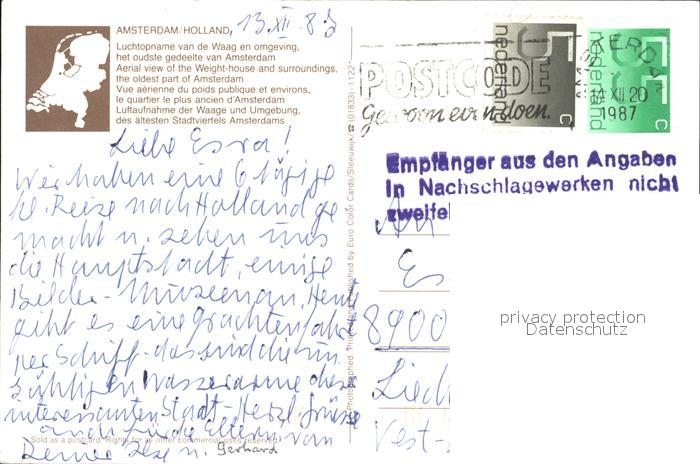 AMSTERDAM/HOLLAND, 13.XII.87
Luchtopname van de Waag en omgeving,
het oudste gedeelte van Amsterdam
Aerial view of the Weight-house and surroundings,
the oldest part of Amsterdam
Vue aérienne du poids publique et environs,
le quartier le plus ancien d'Amsterdam
Luftaufnahme der Waage und Umgebung,
des ältesten Stadtviertels Amsterdams
Liebe Esra!
Wir haben eine 6 tägige
Reise nach Holland ge
macht u. sehen uns
die Hauptstadt, einige
Bilder-Museen an. Heute
gibt es eine Grachtenfahrt
per Schiff- das sind die un
zähligen Wasserarme dieser
interessanten Stadt- Herzl. Grüsse
auch für die Eltern von
Deiner Ilse u. Gerhard
Sold as a postcard. Rights for all other commercial uses reserved.
Photographed, Printed and published by Euro Color Cards/Sleeuwijk/☎(01833)-1122*
POSTCODE
Gewoon even doen.
nederland
55 c
nederland
55 c
14 XII 20
1987
Empfänger aus den Angaben
in Nachschlagewerken nicht
zweifel
An
Es
8900
Liech
Vest-
privacy protection
Datenschutz